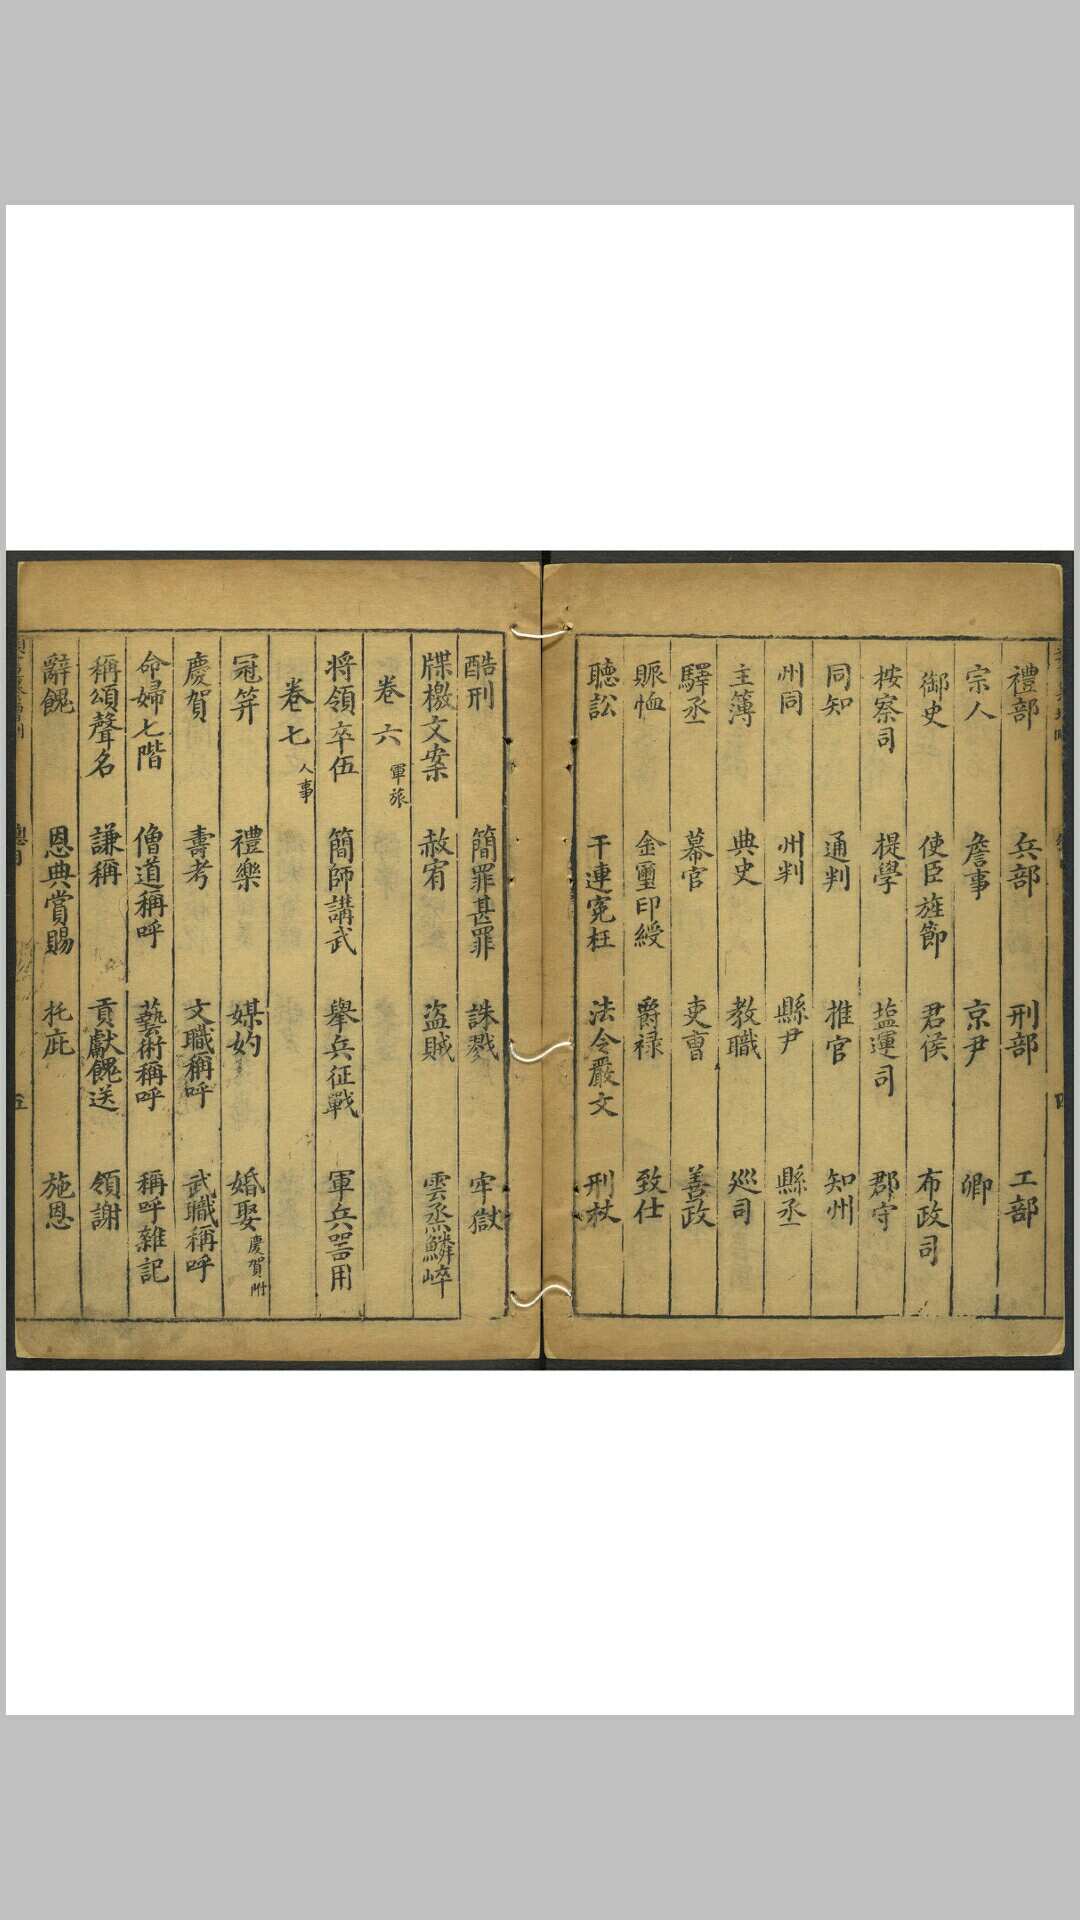 禮部 兵部 刑部 工部
宗人 詹事 京尹 卿
御史 使臣旌節 君侯 布政司
按察司 提學 塩運司 郡守
同知 通判 推官 知州
州同 州判 縣尹 縣丞
主簿 典史 教職 巡司
驛丞 幕官 吏曹 善政
賑恤 金璽印綬 爵禄 致仕
聽訟 干連寃枉 法令嚴文 刑杖
酷刑 簡罪甚罪 誅戮 牢獄
牒檄文案 赦宥 盗賊 雲烝鱗崒
卷六 軍旅
将領卒伍 簡師講武 舉兵征戰 軍兵器用
卷七 人事
冠筓 禮樂 媒妁 婚娶 慶賀附
慶賀 壽考 文職稱呼 武職稱呼
命婦七階 僧道稱呼 藝術稱呼 稱呼雜記
稱頌聲名 謙稱 貢獻餽送 領謝
辭餽 恩典賞賜 托庇 施恩
五